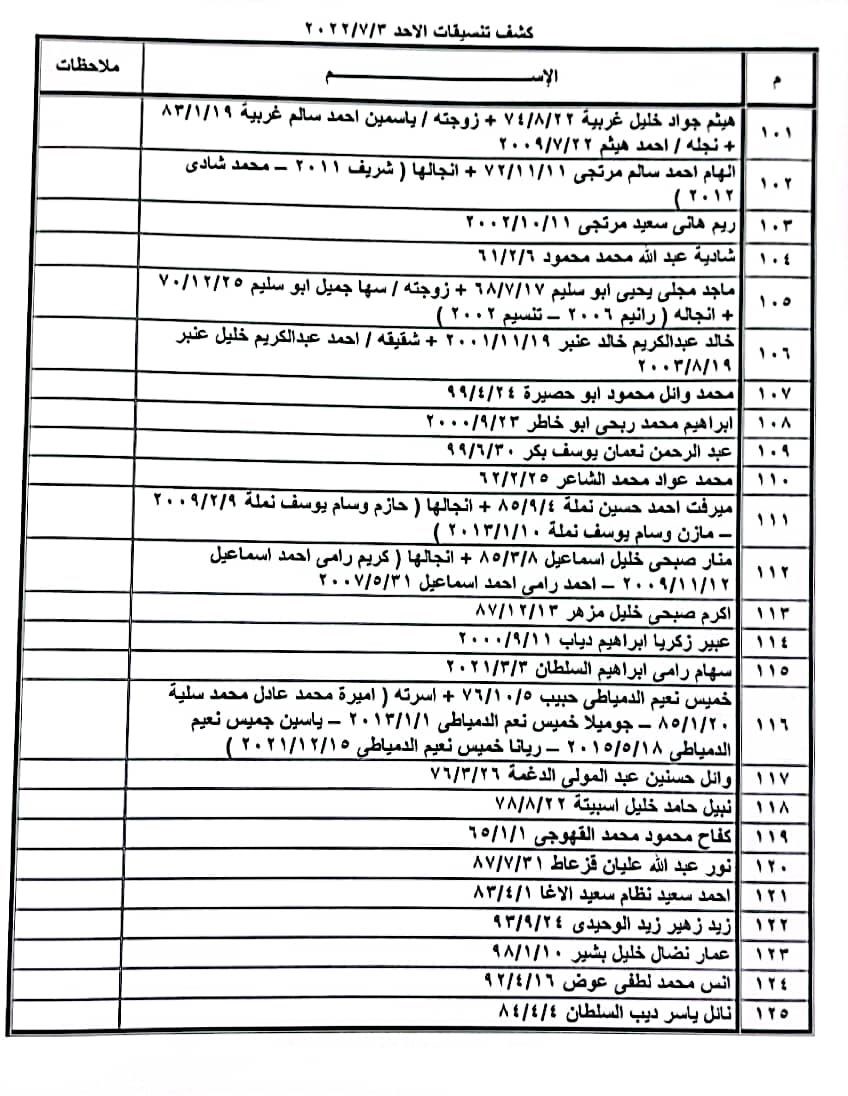 كشف تنسيقات الاحد ٢٠٢٢/٧/٣
م الإســــــــم ملاحظات
١٠١ هيثم جواد خليل غربية ٧٤/٨/٢٢ + زوجته / ياسمين احمد سالم غربية ٨٣/١/١٩
+ نجله / احمد هيثم ٢٠٠٩/٧/٢٢
١٠٢ الهام احمد سالم مرتجى ٧٢/١١/١١ + انجالها ( شريف ٢٠١١ – محمد شادى
٢٠١٢ )
١٠٣ ريم هانى سعيد مرتجى ٢٠٠٢/١٠/١١
١٠٤ شادية عبد الله محمد محمود ٦١/٢/٦
١٠٥ ماجد مجلى يحيى ابو سليم ٦٨/٧/١٧ + زوجته / سها جميل ابو سليم ٧٠/١٢/٢٥
+ انجاله ( رانيم ٢٠٠٦ – تنسيم ٢٠٠٢ )
١٠٦ خالد عبدالكريم خالد عنبر ٢٠٠١/١١/١٩ + شقيقه / احمد عبدالكريم خليل عنبر
٢٠٠٣/٨/١٩
١٠٧ محمد وائل محمود ابو حصيرة ٩٩/٤/٢٤
١٠٨ ابراهيم محمد ربحى ابو خاطر ٢٠٠٠/٩/٢٣
١٠٩ عبد الرحمن نعمان يوسف بكر ٩٩/٦/٣٠
١١٠ محمد عواد محمد الشاعر ٦٢/٢/٢٥
١١١ ميرفت احمد حسين نملة ٨٥/٩/٤ + انجالها ( حازم وسام يوسف نملة ٢٠٠٩/٢/٩
– مازن وسام يوسف نملة ٢٠١٣/١/١٠ )
١١٢ منار صبحى خليل اسماعيل ٨٥/٣/٨ + انجالها ( كريم رامى احمد اسماعيل
٢٠٠٩/١١/١٢ – احمد رامى احمد اسماعيل ٢٠٠٧/٥/٣١
١١٣ اكرم صبحى خليل مزهر ٨٧/١٢/١٣
١١٤ عبير زكريا ابراهيم دياب ٢٠٠٠/٩/١١
١١٥ سهام رامى ابراهيم السلطان ٢٠٢١/٣/٣
١١٦ خميس نعيم الدمياطى حبيب ٧٦/١٠/٥ + اسرته ( اميرة محمد عادل محمد سلية
٨٥/١/٢٠ – جوميلا خميس نعم الدمياطى ٢٠١٣/١/١ – ياسين جميس نعيم
الدمياطى ٢٠١٥/٥/١٨ – ريانا خميس نعيم الدمياطى ٢٠٢١/١٢/١٥ )
١١٧ وائل حسنين عبد المولى الدغمة ٧٦/٣/٢٦
١١٨ نبيل حامد خليل اسبيتة ٧٨/٨/٢٢
١١٩ كفاح محمود محمد القهوجى ٦٥/١/١
١٢٠ نور عبد الله عليان قزعاط ٨٧/٧/٣١
١٢١ احمد سعيد نظام سعيد الاغا ٨٣/٤/١
١٢٢ زيد زهير زيد الوحيدى ٩٣/٩/٢٤
١٢٣ عمار نضال خليل بشير ٩٨/١/١٠
١٢٤ انس محمد لطفى عوض ٩٢/٤/١٦
١٢٥ نائل ياسر ديب السلطان ٨٤/٤/٤